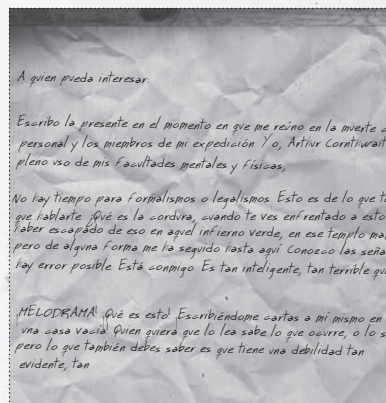 A quien pueda interesar:
Escribo la presente en el momento en que me reúno en la muerte c
personal y los miembros de mi expedición. Yo, Artiur Corntiwait
pleno uso de mis facultades mentales y físicas,
No hay tiempo para formalismos o legalismos. Esto es de lo que te
que hablarte ¿Qué es la cordura, cuando te ves enfrentado a esto
haber escapado de eso en aquel infierno verde, en ese templo mal
pero de alguna forma me ha seguido hasta aquí. Conozco las seña
hay error posible Está conmigo. Es tan inteligente, tan terrible que
¡MELODRAMA! ¡Qué es esto! ¡Escribiéndome cartas a mí mismo en
una casa vacía! Quien quiera que lo lea sabe lo que ocurre, o lo s
pero lo que también debes saber es que tiene una debilidad tan
evidente, tan